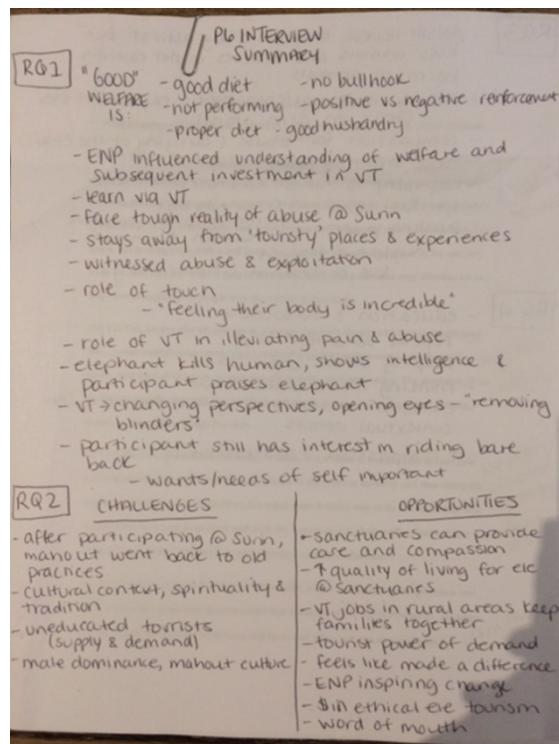 P6 INTERVIEW
SUMMARY
RQ1
"GOOD" - good diet - no bullhook
WELFARE - not performing - positive vs negative reinforcement
IS: - proper diet - good husbandry
- ENP influenced understanding of welfare and
subsequent investment in VT
- learn via VT
- face tough reality of abuse @ Surin
- stays away from 'touristy' places & experiences
- witnessed abuse & exploitation
- role of touch
- "feeling their body is incredible"
- role of VT in illeviating pain & abuse
- elephant kills human, shows intelligence &
participant praises elephant
- VT → changing perspectives, opening eyes - "removing
blinders"
- participant still has interest in riding bare
back
- wants/needs of self important
RQ2
CHALLENGES
- after participating @ Surin,
mahout went back to old
practices
- cultural context, spirituality &
tradition
- uneducated torrists
(supply & demand)
- male dominance, mahout culture
OPPORTUNITIES
- sanctuaries can provide
care and compassion
- ↑ quality of living for ele
@ sanctuaries
- VT jobs in rural areas keep
families together
- tourist power of demand
- feels like made a difference
- ENP inspiring change
- $ in ethical ele tourism
- word of mouth